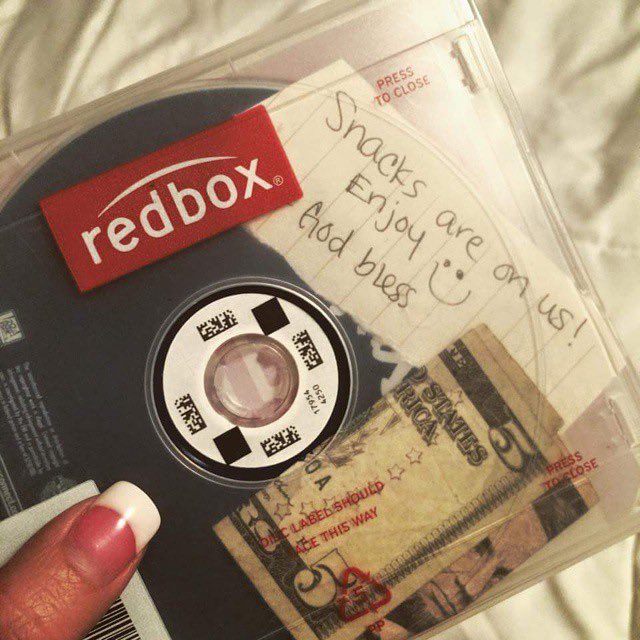 PRESS
TO CLOSE
redbox®
Snacks are on us!
Enjoy :)
God bless
17956
4250
STATES
5
PRESS
TO CLOSE
DISC LABEL SHOULD
FACE THIS WAY
5
PP